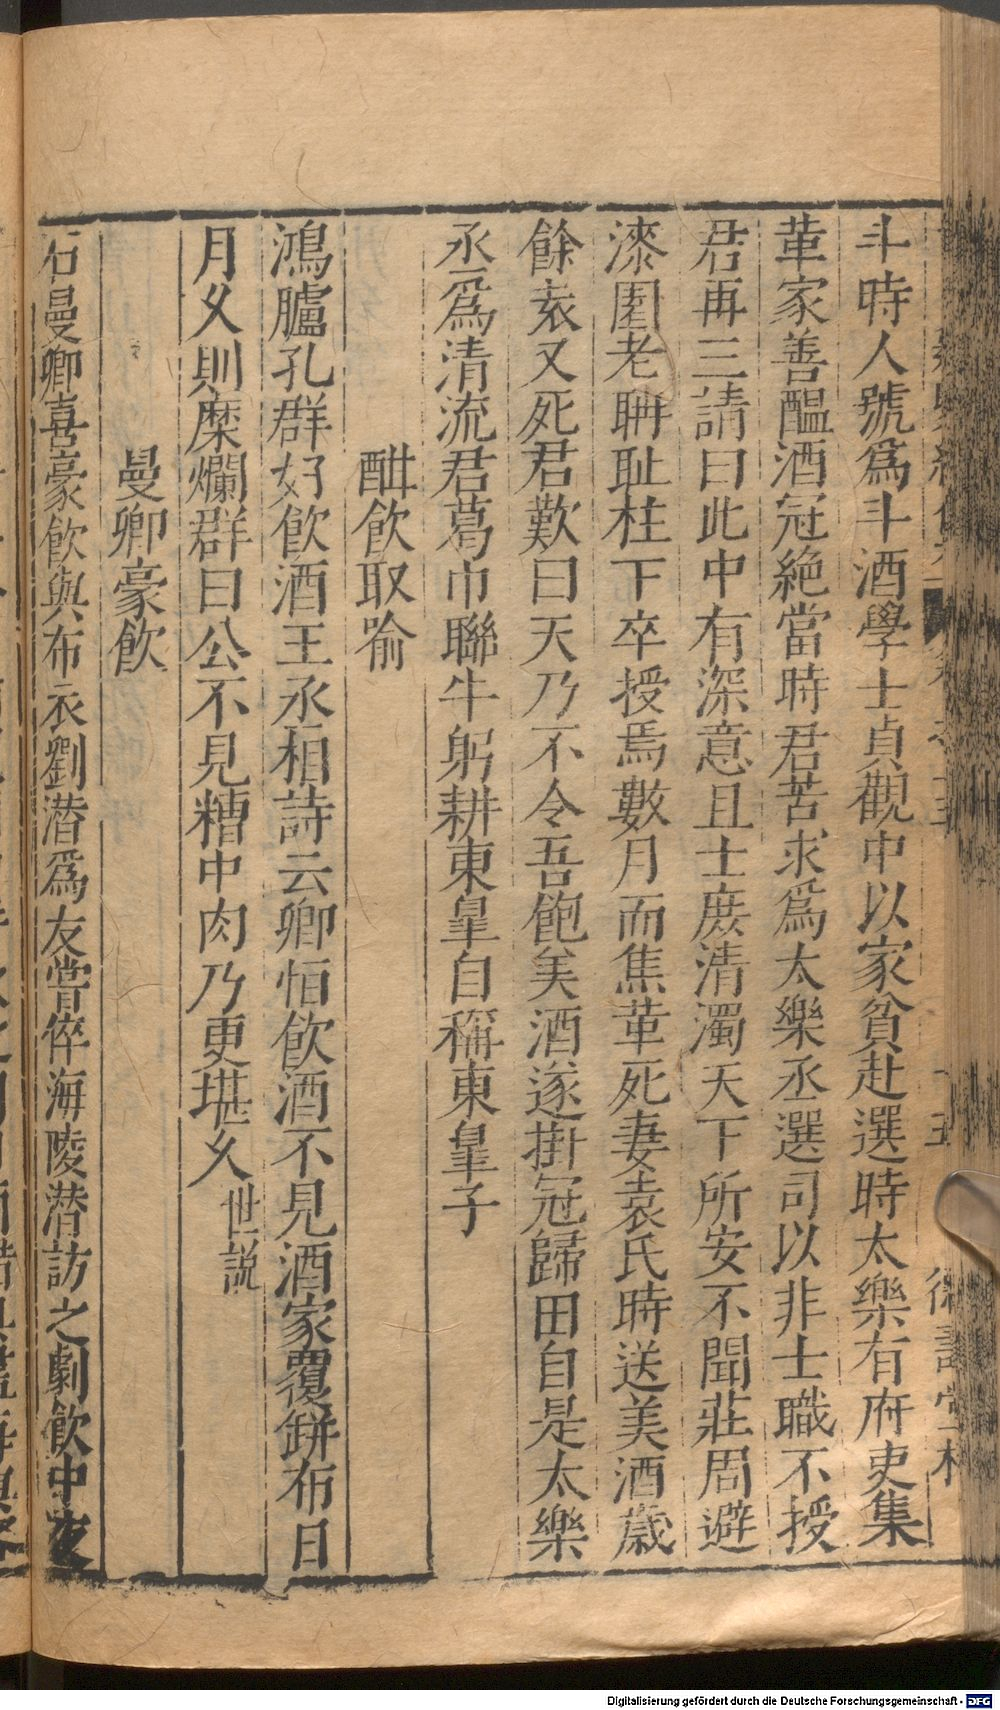 斗時人號爲斗酒學士貞觀中以家貧赴選時太樂有府吏集
革家善醖酒冠絶當時君苦求爲太樂丞選司以非士職不授
君再三請曰此中有深意且士庶清濁天下所安不聞莊周避
漆園老聃耻柱下卒授焉數月而焦革死妻袁氏時送美酒歲
餘袁又死君歎曰天乃不令吾飽美酒遂掛冠歸田自是太樂
丞爲清流君葛巾聯牛躬耕東臯自稱東臯子
酣飲取喻
鴻臚孔群好飲酒王丞相詩云卿恒飲酒不見酒家覆缾布日
月乆則糜爛群曰公不見糟中肉乃更堪乆世説
曼卿豪飲
石曼卿喜豪飲與布衣劉潜爲友嘗倅海陵潜訪之劇飲中夜
Digitalisierung gefördert durch die Deutsche Forschungsgemeinschaft - DFG